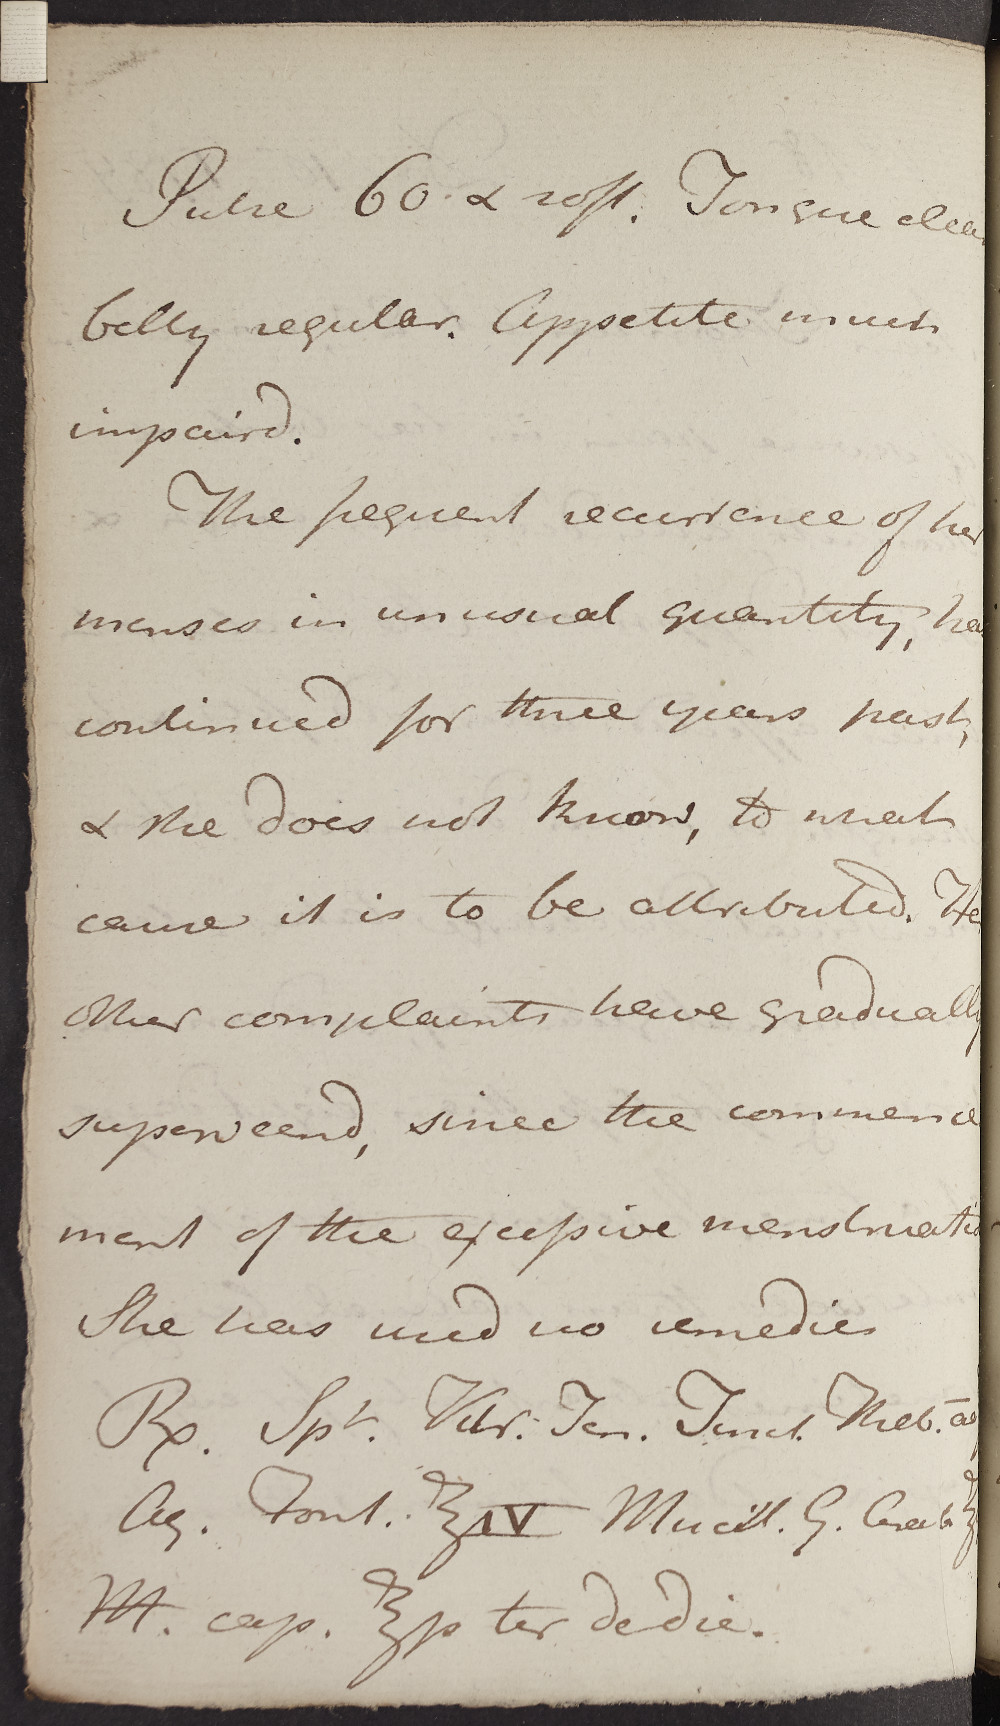 Pulse 60 & soft. Tongue clea
belly regular. Appetite much
impaird.
The frequent recurrence of her
menses in unusual quantity, ha
continued for three years past,
& she does not know, to what
cause it is to be attributed. He
other complaints have gradually
superveend, since the commence
ment of the excessive menstruatio
She has used no remedies
Rx. Spt. Vitr. Ten. Tinct. Theb. aa
Aq. Font. ℥IV Mucil. G. Arab ℥
M. cap. ℥ß ter de die.